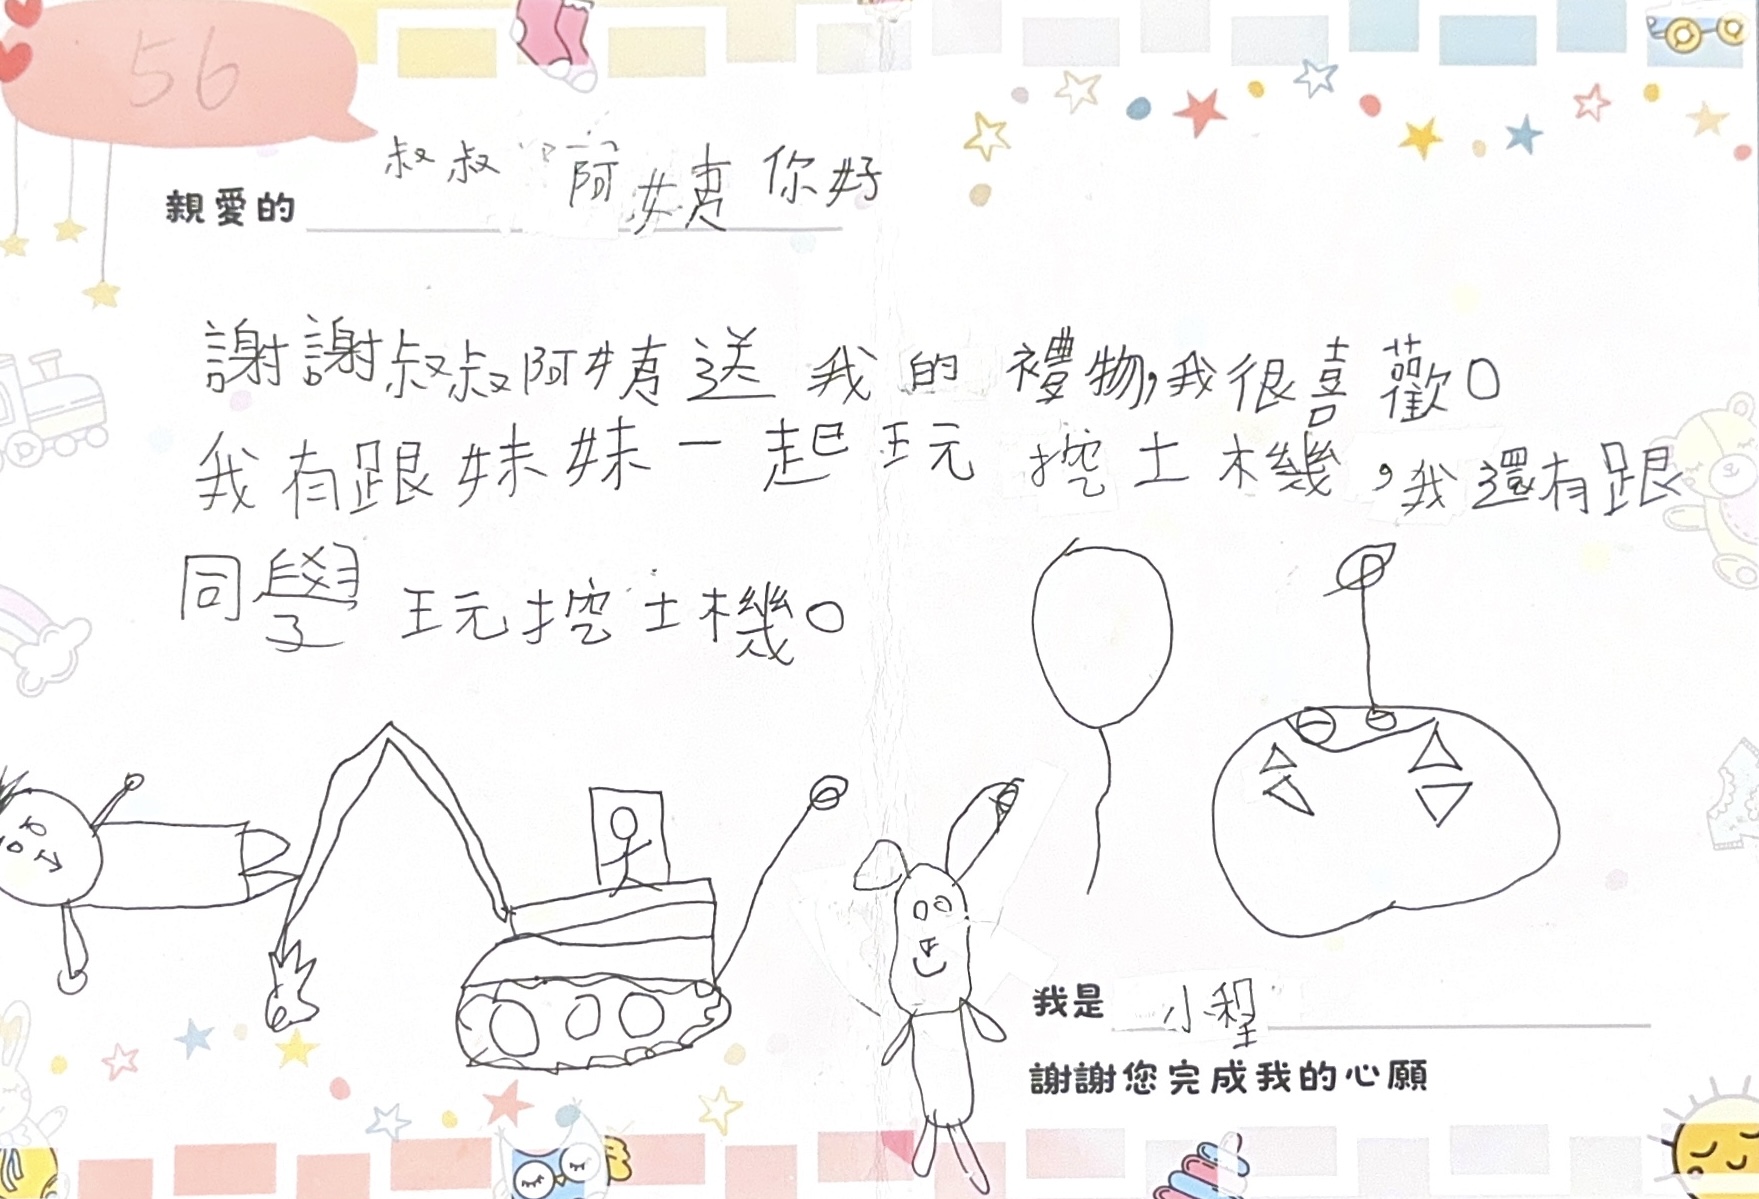 56
親愛的 叔叔 阿姨 你好
謝謝叔叔阿姨送我的禮物,我很喜歡。
我有跟妹妹一起玩挖土機,我還有跟
同學玩挖土機。
我是 小程
謝謝您完成我的心願